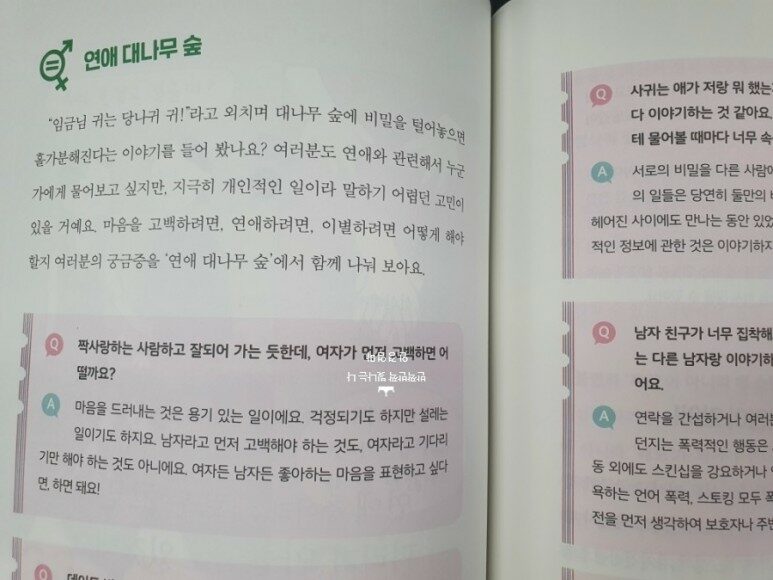 연애 대나무 숲
“임금님 귀는 당나귀 귀!”라고 외치며 대나무 숲에 비밀을 털어놓으면
홀가분해진다는 이야기를 들어 봤나요? 여러분도 연애와 관련해서 누군
가에게 물어보고 싶지만, 지극히 개인적인 일이라 말하기 어렵던 고민이
있을 거예요. 마음을 고백하려면, 연애하려면, 이별하려면 어떻게 해야
할지 여러분의 궁금증을 ‘연애 대나무 숲’에서 함께 나눠 보아요.
Q 짝사랑하는 사람하고 잘되어 가는 듯한데, 여자가 먼저 고백하면 어
떨까요?
A 마음을 드러내는 것은 용기 있는 일이에요. 걱정되기도 하지만 설레는
일이기도 하지요. 남자라고 먼저 고백해야 하는 것도, 여자라고 기다리
기만 해야 하는 것도 아니에요. 여자든 남자든 좋아하는 마음을 표현하고 싶다
면, 하면 돼요!
Q
Q 사귀는 애가 저랑 뭐 했는
다 이야기하는 것 같아요.
테 물어볼 때마다 너무 속
A 서로의 비밀을 다른 사람에
의 일들은 당연히 둘만의
헤어진 사이에도 만나는 동안 있었
적인 정보에 관한 것은 이야기하지
Q 남자 친구가 너무 집착해
는 다른 남자랑 이야기하
어요.
A 연락을 간섭하거나 여러
던지는 폭력적인 행동은
동 외에도 스킨십을 강요하거나
욕하는 언어 폭력, 스토킹 모두 폭
전을 먼저 생각하여 보호자나 주변